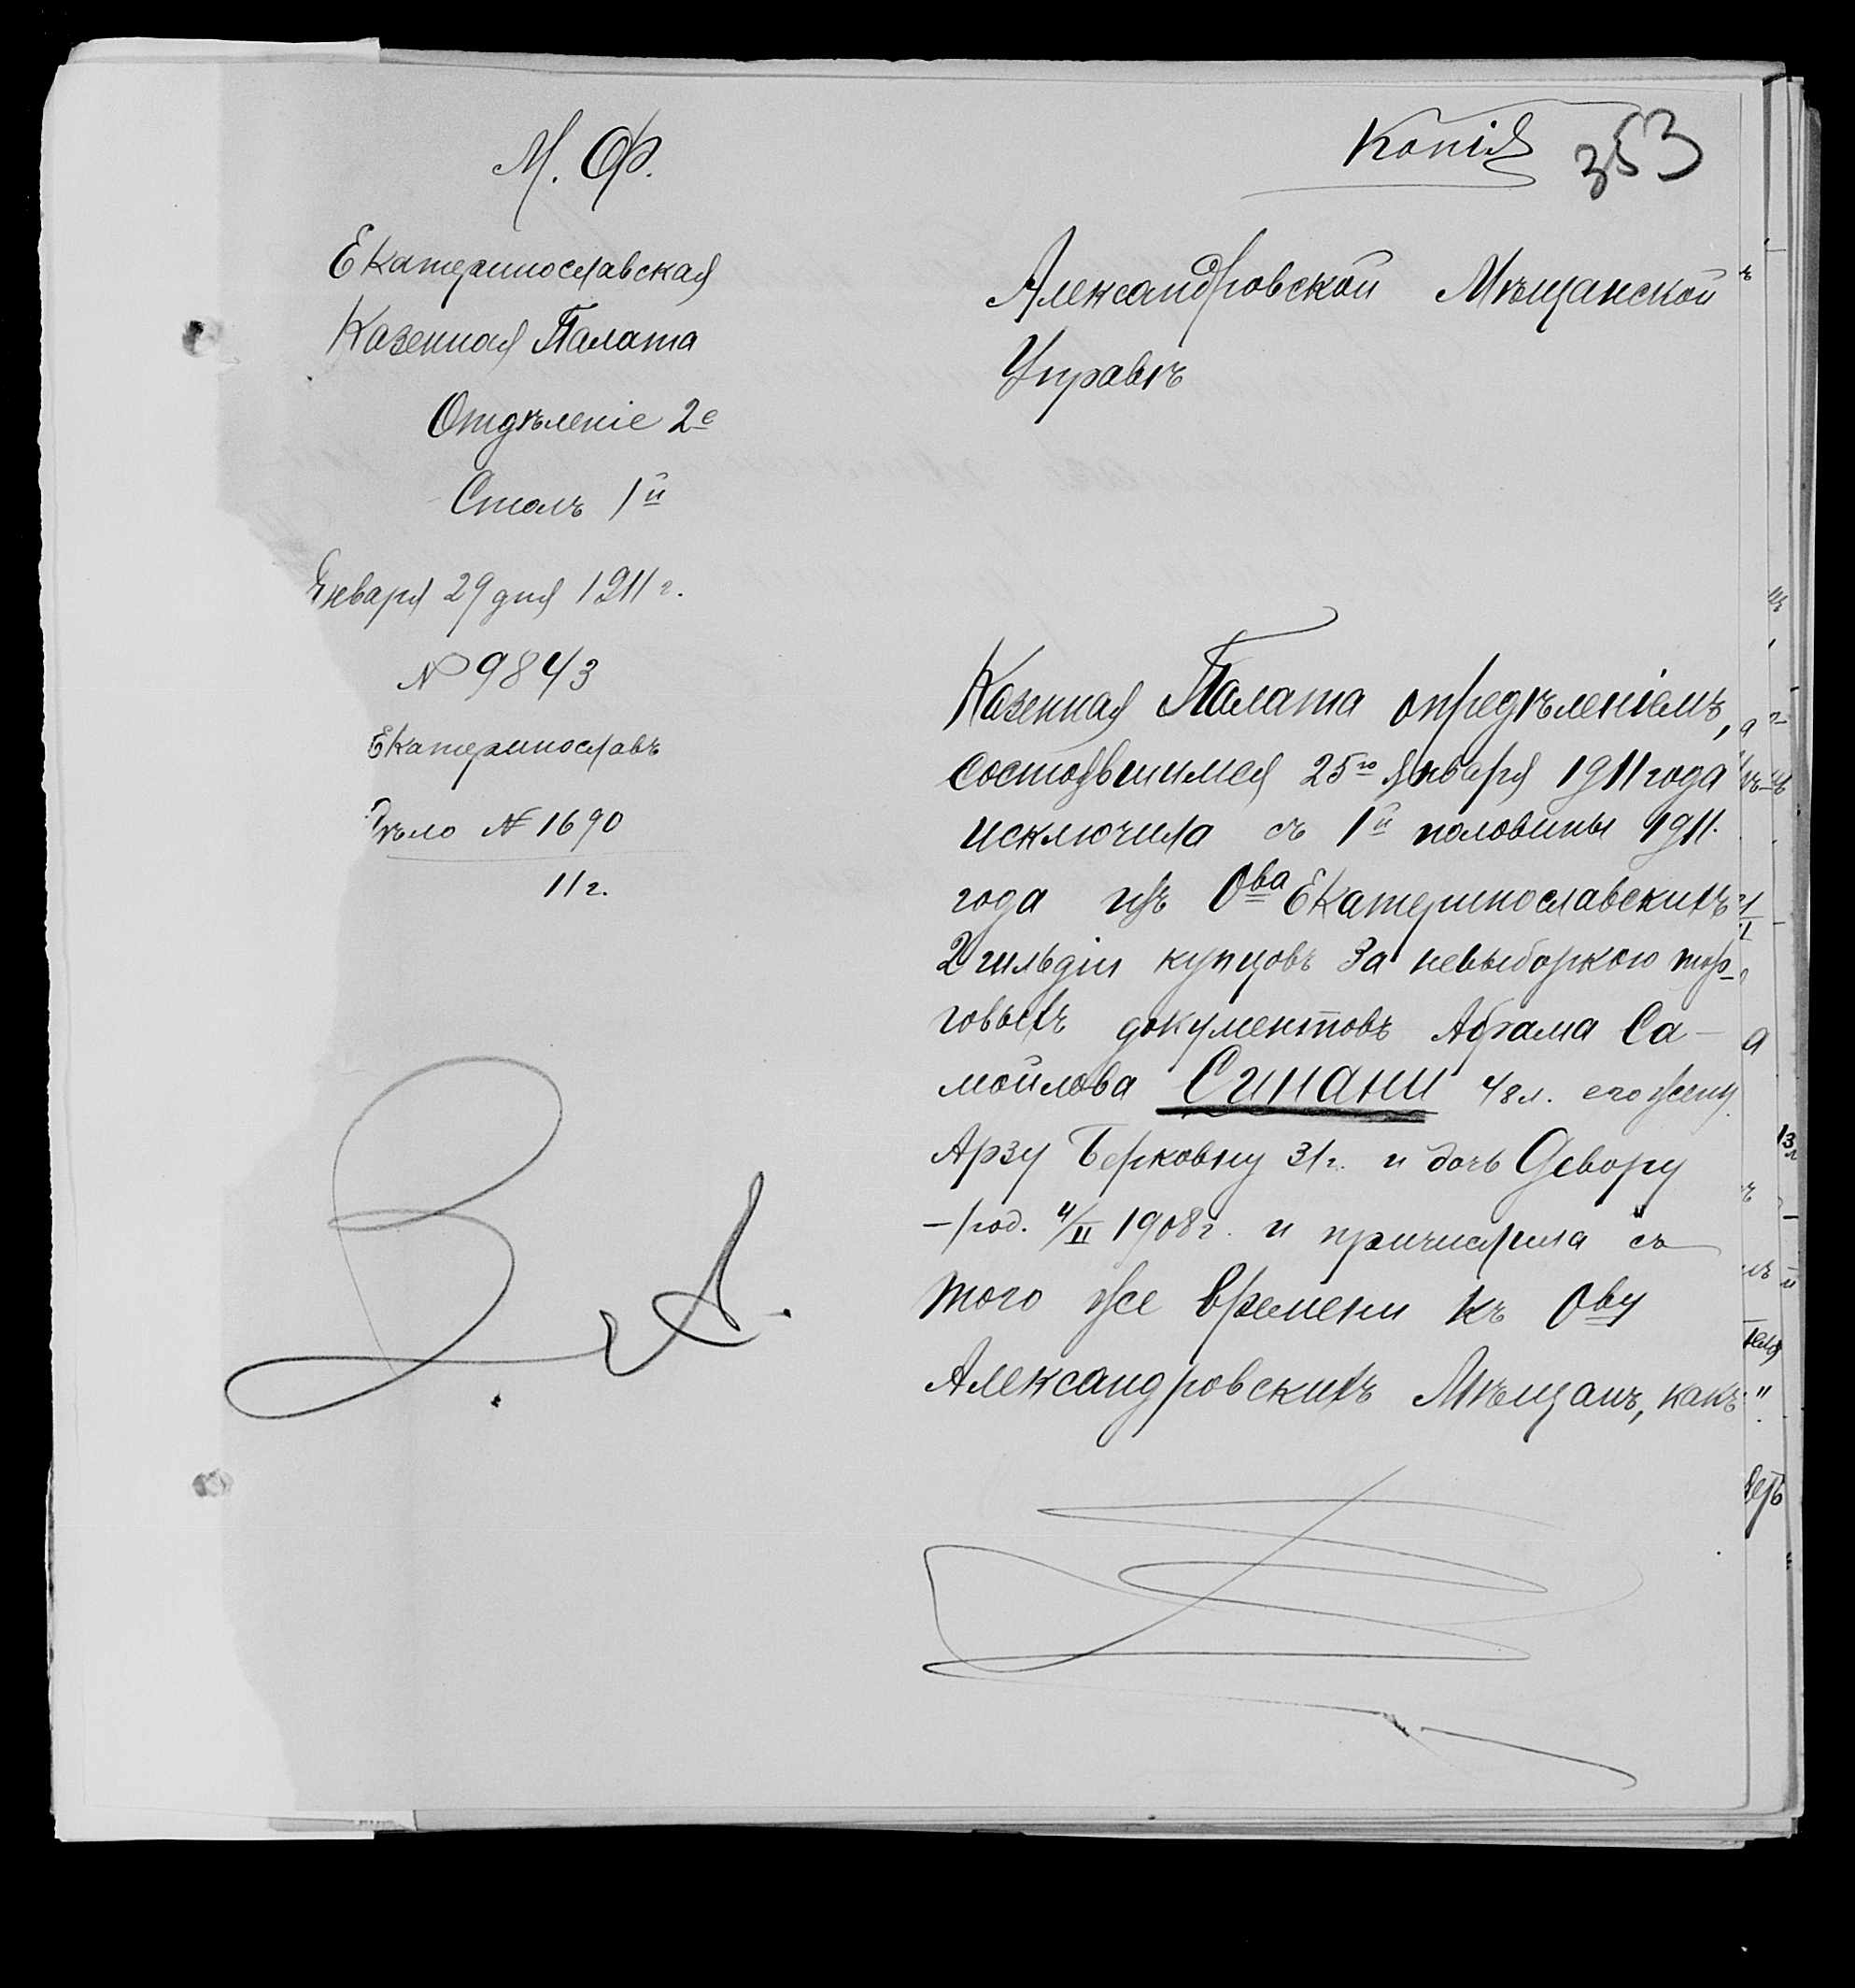 М. Ф.
Екатеринославская
Казенная Палата
Отдѣленіе 2е
Столъ 1й
Января 29 дня 1911 г.
№ 9843
Екатеринославъ
Дѣло № 1690
11 г.
Копія 353
Александровской Мѣщанской
Управѣ
Казенная Палата опредѣленіемъ,
состоявшимся 25го Января 1911 года
исключила съ 1й половины 1911
года изъ Ова Екатеринославскихъ
2 гильдіи купцовъ за невыборкою тор-
говыхъ документовъ Абрама Са-
мойлова Синани 48 л. его жену
Арзу Берковну 31 г. и дочь Девору
- род. 4/II 1908 г. и причислила съ
того же времени къ Ову
Александровскихъ Мѣщанъ, какъ